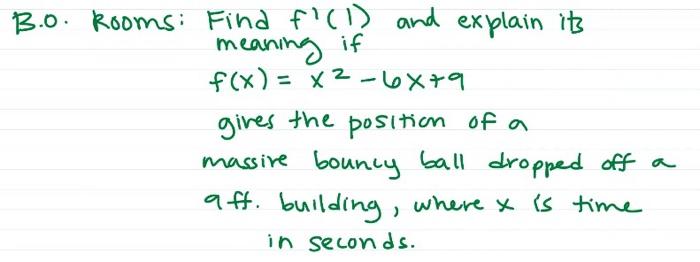 B.O. Rooms: Find f'(1) and explain its
meaning if
f(x) = x² - 6x+9
gives the position of a
massive bouncy ball dropped off a
9 ft. building, where x is time
in seconds.